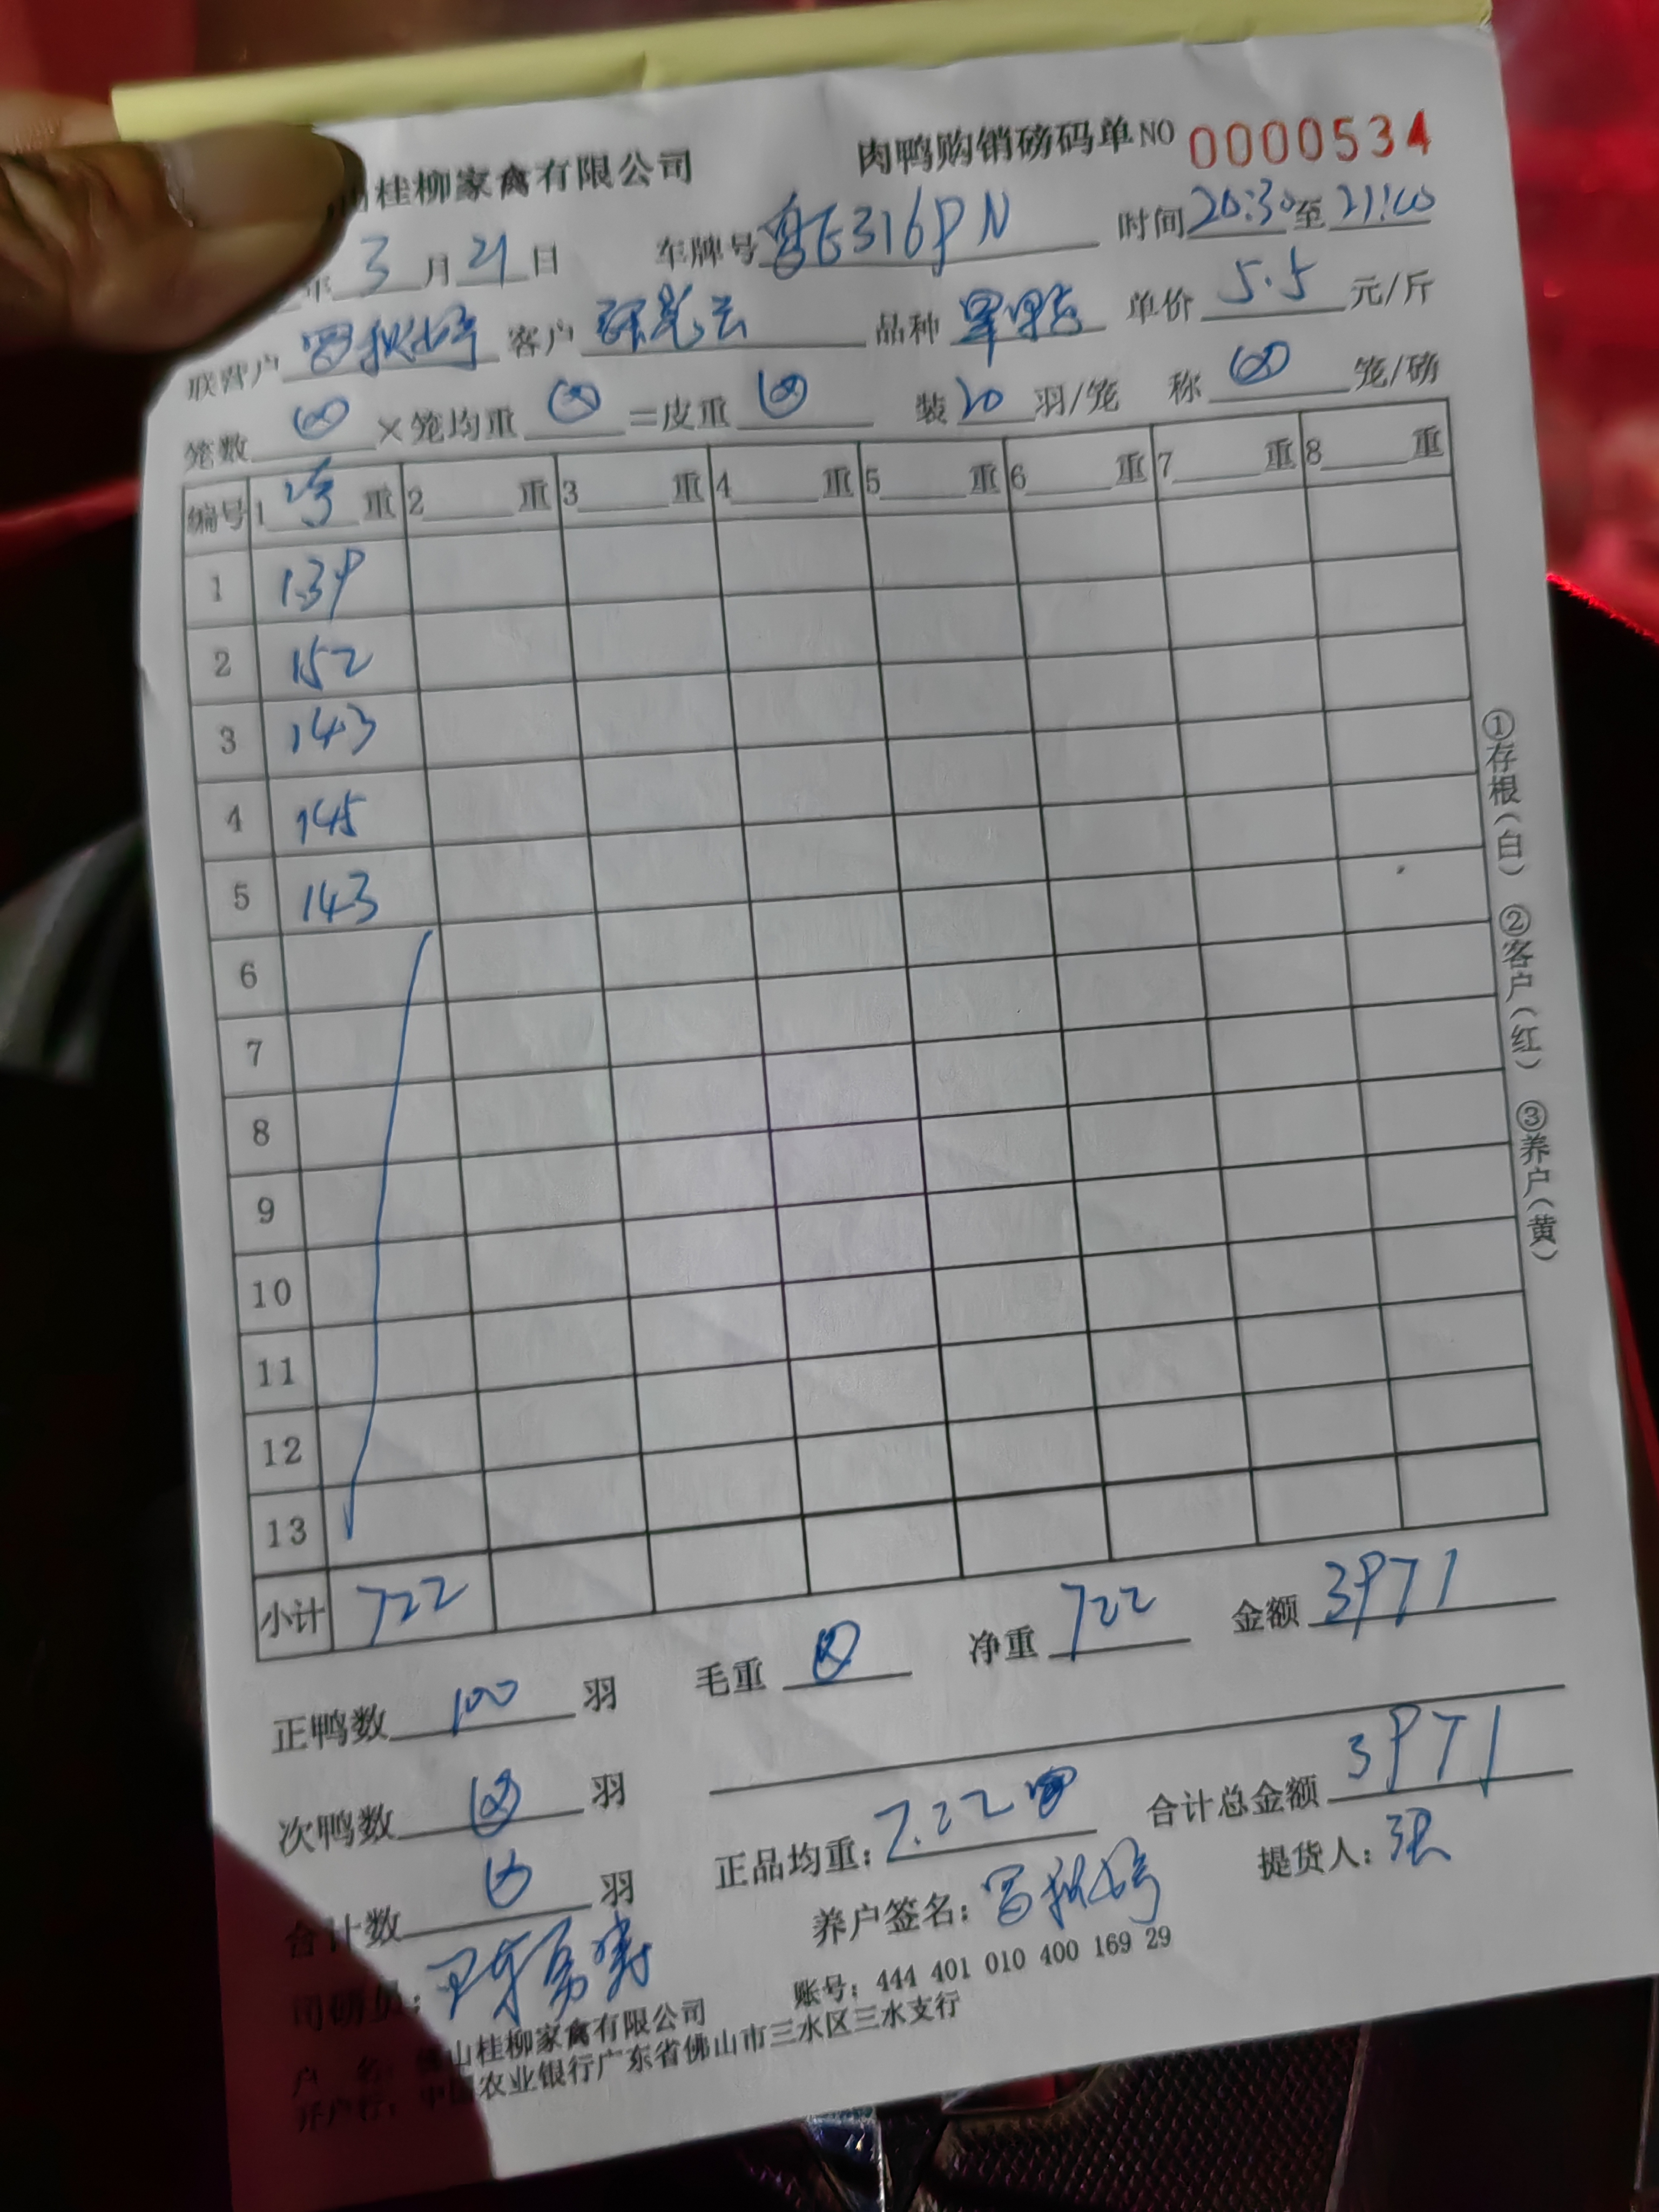 山桂柳家禽有限公司 肉鸭购销磅码单NO 0000534
年 3 月 21 日 车牌号 粤E316PN 时间 20:30 至 21:00
联营户 客户 品种 单价 5.5 元/斤
笼数 ×笼均重 =皮重 装 20 羽/笼 称 笼/磅
编号 1 净 重 2 重 3 重 4 重 5 重 6 重 7 重 8 重
1 139
2 152
3 143
4 145
5 143
6
7
8
9
10
11
12
13
小计 722
正鸭数 100 羽 毛重 净重 722 金额 3971
次鸭数 羽 正品均重: 7.22 合计总金额 3971
合计数 羽 养户签名: 提货人: 张
司磅员:
户 名: 佛山桂柳家禽有限公司 账号: 444 401 010 400 169 29
开户行: 中国农业银行广东省佛山市三水区三水支行
①存根(白) ②客户(红) ③养户(黄)